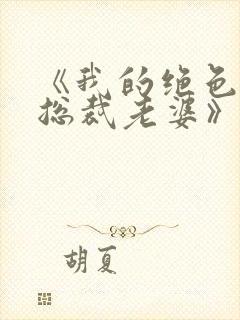 《我的绝色
总裁老婆》
胡夏